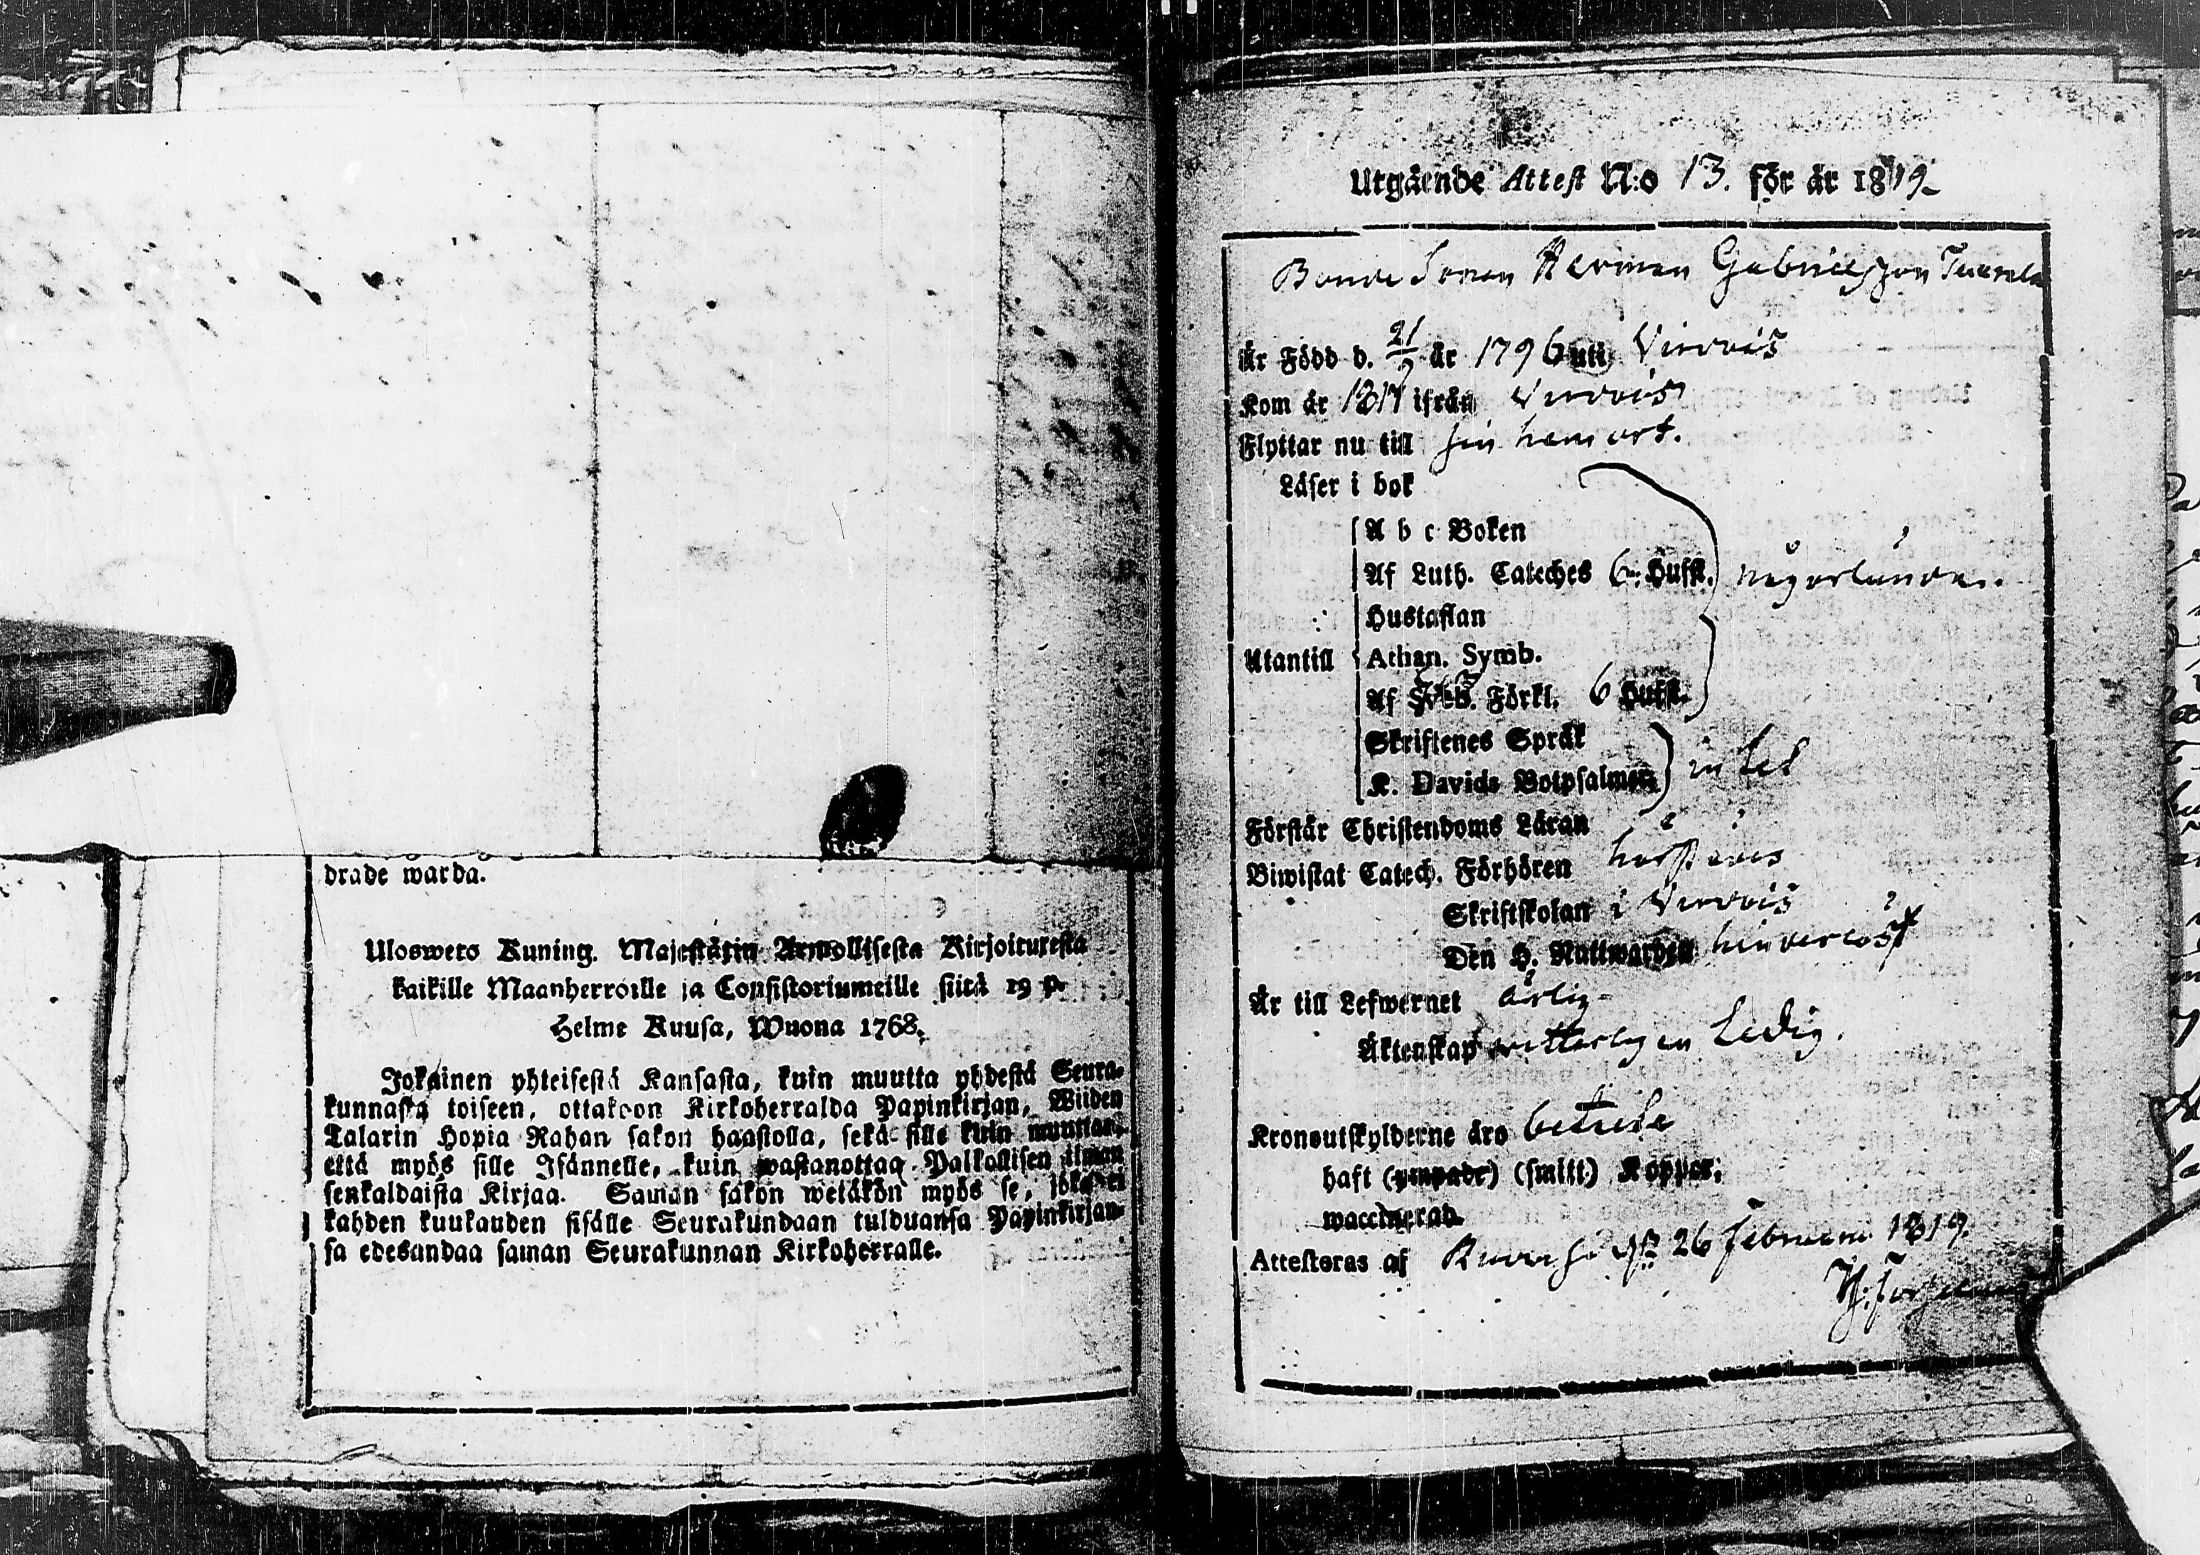 drade warda.
Uloswero Kuning. Majestätin Armollisesta Kirjoituresta
kaikille Maanherroille ja Consistoriumeille siitä 19 p.
Helme Kuusa, Wuona 1768.
Jokainen yhteisestä Kansasta, kuin muutta yhdestä Seura-
kunnasta toiseen, ottakoon Kirkoherralda Papinkirjan, Wiiden
Talarin Hopia Rahan sakon haastolla, sekä sille kuin muuttaa,
että myös sille Isännelle, kuin wastanottaa Palkollisen ilman
senkaldaista Kirjaa. Saman sakon wetäkön myös se, joka ei
kahden kuukauden sisälle Seurakundaan tulduansa Papinkirjan-
sa edesandaa saman Seurakunnan Kirkoherralle.
Utgående Attest N:o 13. för år 1819
Bonde Sonen Herman Gabrielsson
Är Född d. 21/2 år 1796 uti Virdois
Kom år 1817 ifrån Virdois
Flyttar nu till sin hemort.
Läser i bok
A b c Boken
Af Luth. Cateches 6 Hufst. någorlunda.
Hustaflan
Utantill Athan. Symb.
Af Förkl. 6 Hufst.
Skriftenes Språk
K. Davids Botpsalmer intet
Förstår Christendoms Läran
Biwistat Catech. Förhören
Skriftskolan i Virdois
Den H. Nattwarden hinderlöst
Är till Lefwernet ärlig
Äktenskap witterligen Ledig.
Kronoutskylderne äro betalte
haft (ympade) (smitt) Koppor,
waccinerad
Attesteras af d. 26 Februarii 1819.